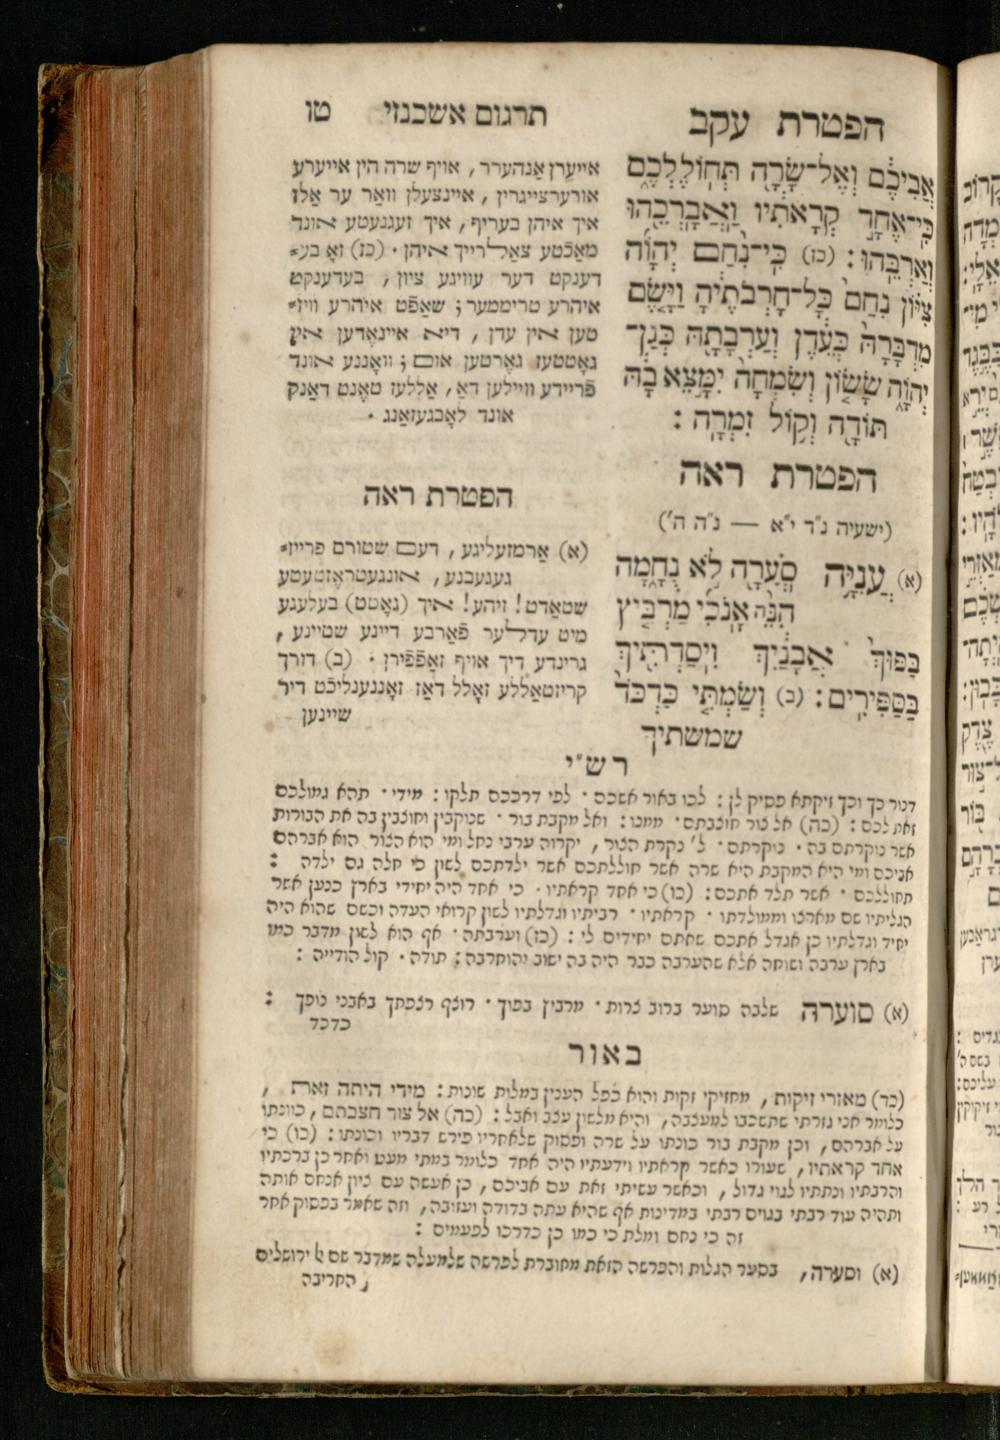 הפטרת עקב
תרגום אשכנזי
טו
אֲבִיכֶ֔ם וְאֶל־שָׂרָ֖ה תְּחוֹלֶלְכֶ֑ם
כִּי־אֶחָ֣ד קְרָאתִ֔יו וַאֲבָרְכֵ֖הוּ
וְאַרְבֵּֽהוּ׃ (כז) כִּֽי־נִחַ֨ם יְהוָ֜ה
צִיּ֗וֹן נִחַם֙ כָּל־חָרְבֹתֶ֔יהָ וַיָּ֤שֶׂם
מִדְבָּרָהּ֙ כְּעֵ֔דֶן וְעַרְבָתָ֖הּ כְּגַן־
יְהוָ֑ה שָׂשׂ֤וֹן וְשִׂמְחָה֙ יִמָּ֣צֵא בָ֔הּ
תּוֹדָ֖ה וְק֥וֹל זִמְרָֽה׃
הפטרת ראה
(ישעיה נ"ד י"א — נ"ה ה')
(א) עֲנִיָּ֥ה סֹעֲרָ֖ה לֹ֣א נֻחָ֑מָה
הִנֵּ֨ה אָנֹכִ֜י מַרְבִּ֤יץ
בַּפּוּךְ֙ אֲבָנַ֔יִךְ וִיסַדְתִּ֖יךְ
בַּסַּפִּירִֽים׃ (ב) וְשַׂמְתִּ֤י כַּֽדְכֹד֙
שמשתיך
אייערן אַנהעררן, אויף שרה הין אייערע
אורערצייגרין, איינצעלן וואַר ער אַלז
איך איהן בעריף, איך זעגנעטע אונד
מאַכֿטע צאַלרייך איהן. (כז) זאָ בע־
דענקט דער עוויגע ציון, בעדענקט
איהרע טריממער; שאַפֿט איהרע וויז־
טען אין עדן, דיא איינאָדען אין
גאָטטעז גאַרטען אום; וואָננע אונד
פֿריידע וויילען דאַ, אַללעז טאָנט דאַנק
אונד לאָבגעזאַנג.
הפטרת ראה
(א) אַרמזעליגע, דעם שטורם פרייז־
געגעבנע, אונגעטראָזטעטע
שטאַדט! זיהע! איך (גאָטט) בעלעגע
מיט עדלער פֿאַרבע דיינע שטיינע,
גרינדע דיך אויף זאַפֿפֿירן. (ב) דורך
קריזטאַללע זאָלל דאַז זאָננענליכֿט דיר
שיינען
רש"י
דנור כך וכך זיקתא פסיק לן: לכו באור אשכם. לפי דרככם תלקו: מידי. תהא גמולכם
זאת לכם: (כה) אל צור חוצבתם. ממנו: ואל מקבת בור. שנוקבין וחוצבין בה את הבורות
אשר נוקרתם בה. נוקרתם. ל' נקרת הצור, יקרוה ערבי נחל ומי הוא הצור הוא אברהם
אביכם ומי היא המקבת היא שרה אשר חוללתכם אשר ילדתכם לשון כי חלה גם ילדה:
תחוללכם. אשר תלד אתכם: (כו) כי אחד קראתיו. כי אחד היה יחידי בארץ כנען אשר
הגליתיו שם מארצו וממולדתו. קראתיו. רביתיו וגדלתיו לשון קרואי העדה וכשם שהוא היה
יחיד וגדלתיו כן אגדל אתכם שאתם יחידים לי: (כז) וערבתה. אף הוא לשון מדבר כמו
בארץ ערבה ושוחה אלא שהערבה כבר היה בה ישוב והוחרבה: תודה. קול הודייה:
(א) סוערה שלבה סוער ברוב צרות. מרביץ בפוך. רוצף רצפתך באבני נופך:
כדכד
באור
(כד) מאזרי זיקות, מחזיקי זקות והוא כפל הענין במלות שונות: מידי היתה זאת,
כלומר אני גזרתי שתשכבו למעצבה, והיא מלשון עצב ואבל: (כה) אל צור חצבתם, כוונתו
על אברהם, וכן מקבת בור כונתו על שרה ופסוק שלאחריו פירש דבריו וכונתו: (כו) כי
אחד קראתיו, שעורו כאשר קראתיו וידעתיו היה אחד כלומר במתי מעט ואחר כן ברכתיו
והרבתיו ונתתיו לגוי גדול, וכאשר עשיתי זאת עם אביכם, כן אעשה עם ציון אנחם אותה
ותהיה עוד רבתי בגוים רבתי במדינות אף שהיא עתה בדודה ועזובה, וזה שאמר בפסוק אחר
זה כי נחם ומלת כי כמו כן כדרכו לפעמים:
(א) וסערה, בסער הגלות והפרשה הזאת מחוברת לפרשה שלמעלה שמדבר שם ירושלים
החריבה